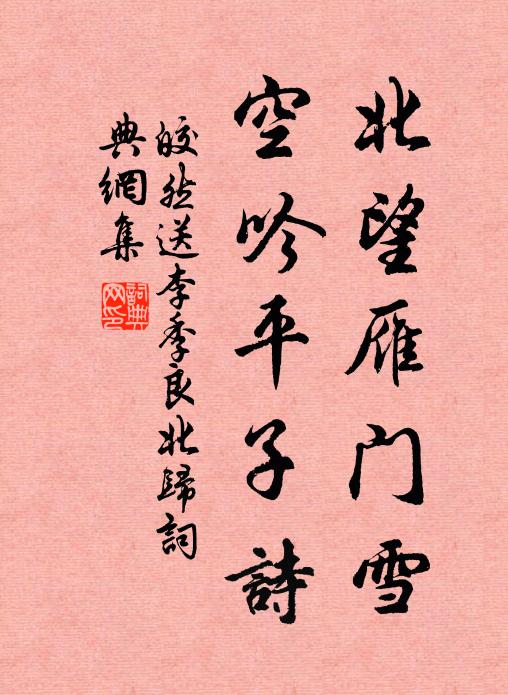 北望雁门雪
空吟平子詩
皎然送李季良北歸詞
典網集
詞典
网印